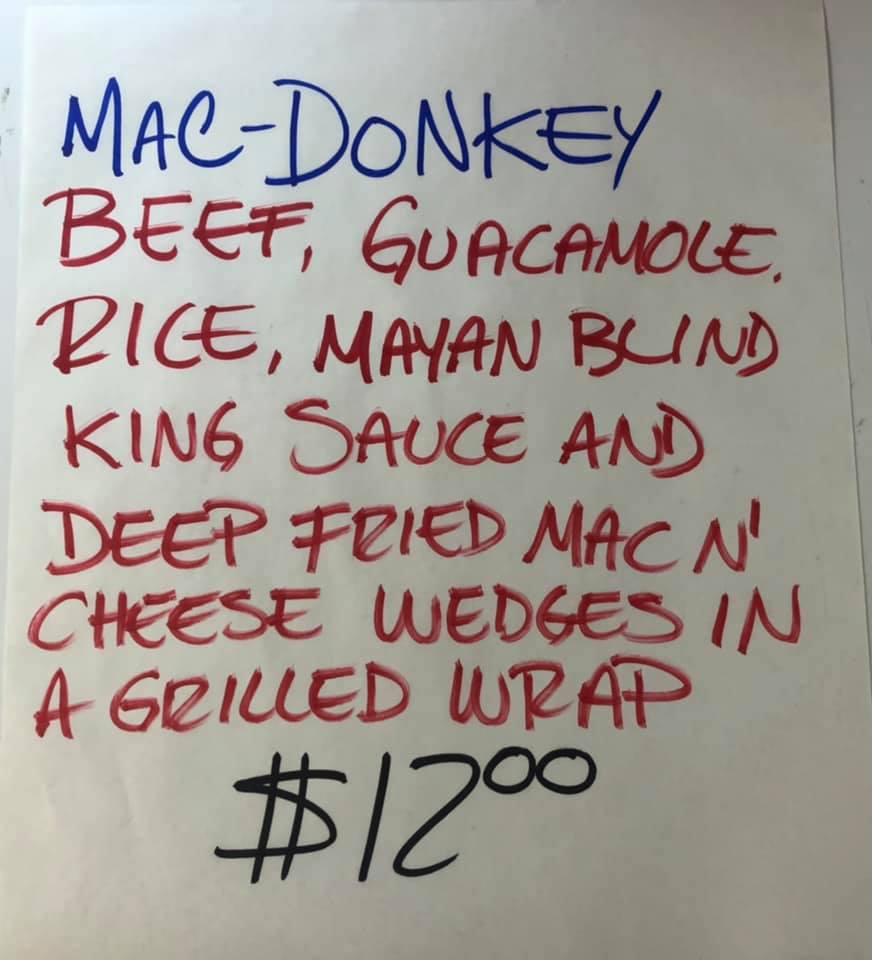 MAC-DONKEY
BEEF, GUACAMOLE.
RICE, MAYAN BLIND
KING SAUCE AND
DEEP FRIED MAC N'
CHEESE WEDGES IN
A GRILLED WRAP
$12.00